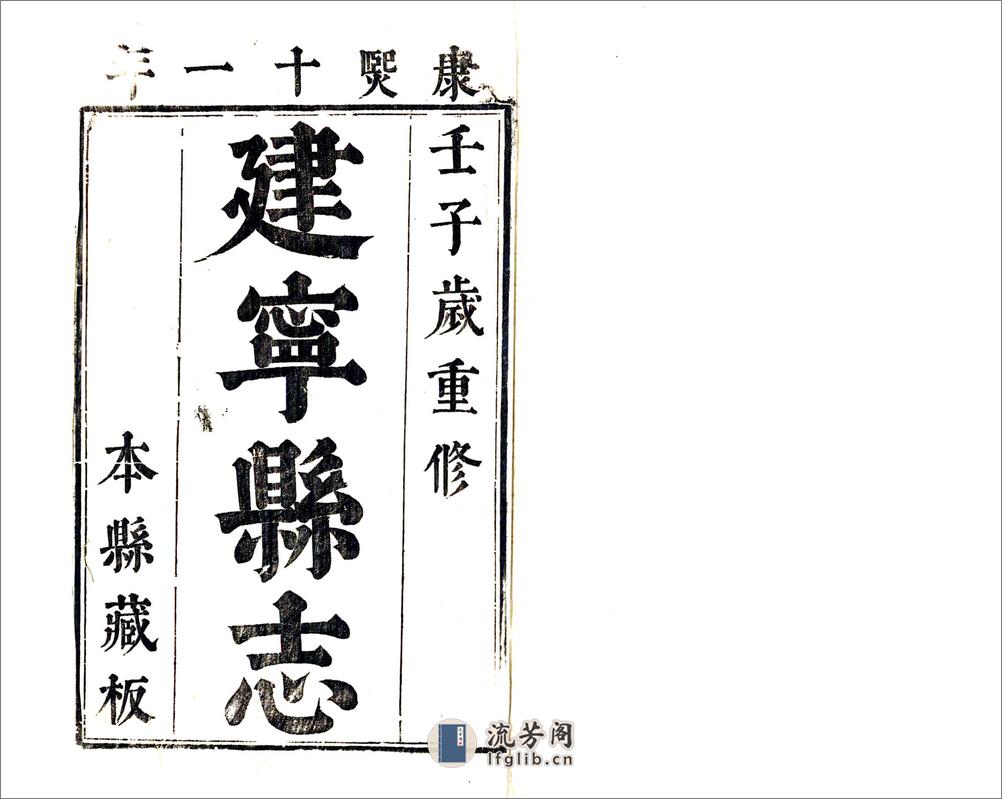 康熙十一年
壬子歲重修
建寧縣志
本縣藏板
流芳阁
lfglib.cn